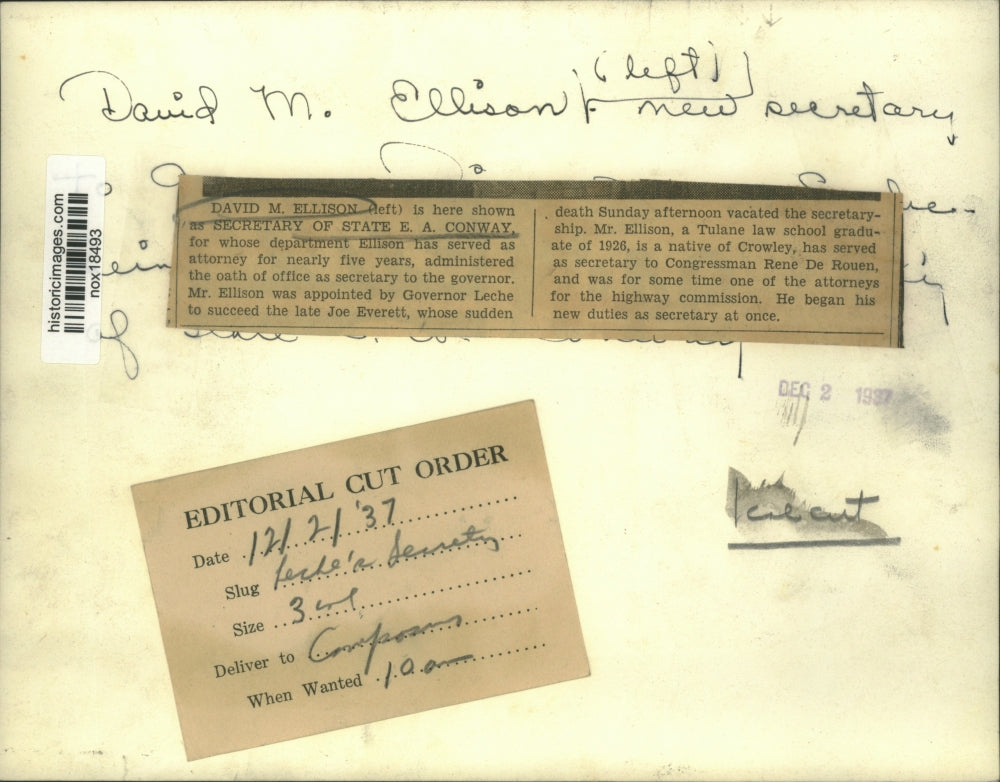 (left)
David M. Ellison, new secretary
historicimages.com
nox18493
DAVID M. ELLISON (left) is here shown
as SECRETARY OF STATE E. A. CONWAY,
for whose department Ellison has served as
attorney for nearly five years, administered
the oath of office as secretary to the governor.
Mr. Ellison was appointed by Governor Leche
to succeed the late Joe Everett, whose sudden
death Sunday afternoon vacated the secretary-
ship. Mr. Ellison, a Tulane law school gradu-
ate of 1926, is a native of Crowley, has served
as secretary to Congressman Rene De Rouen,
and was for some time one of the attorneys
for the highway commission. He began his
new duties as secretary at once.
of
DEC 2 1937
EDITORIAL CUT ORDER
Date 12/2/'37
Slug Leche's Secretary
Size 3 col
Deliver to Composing
When Wanted 10 am